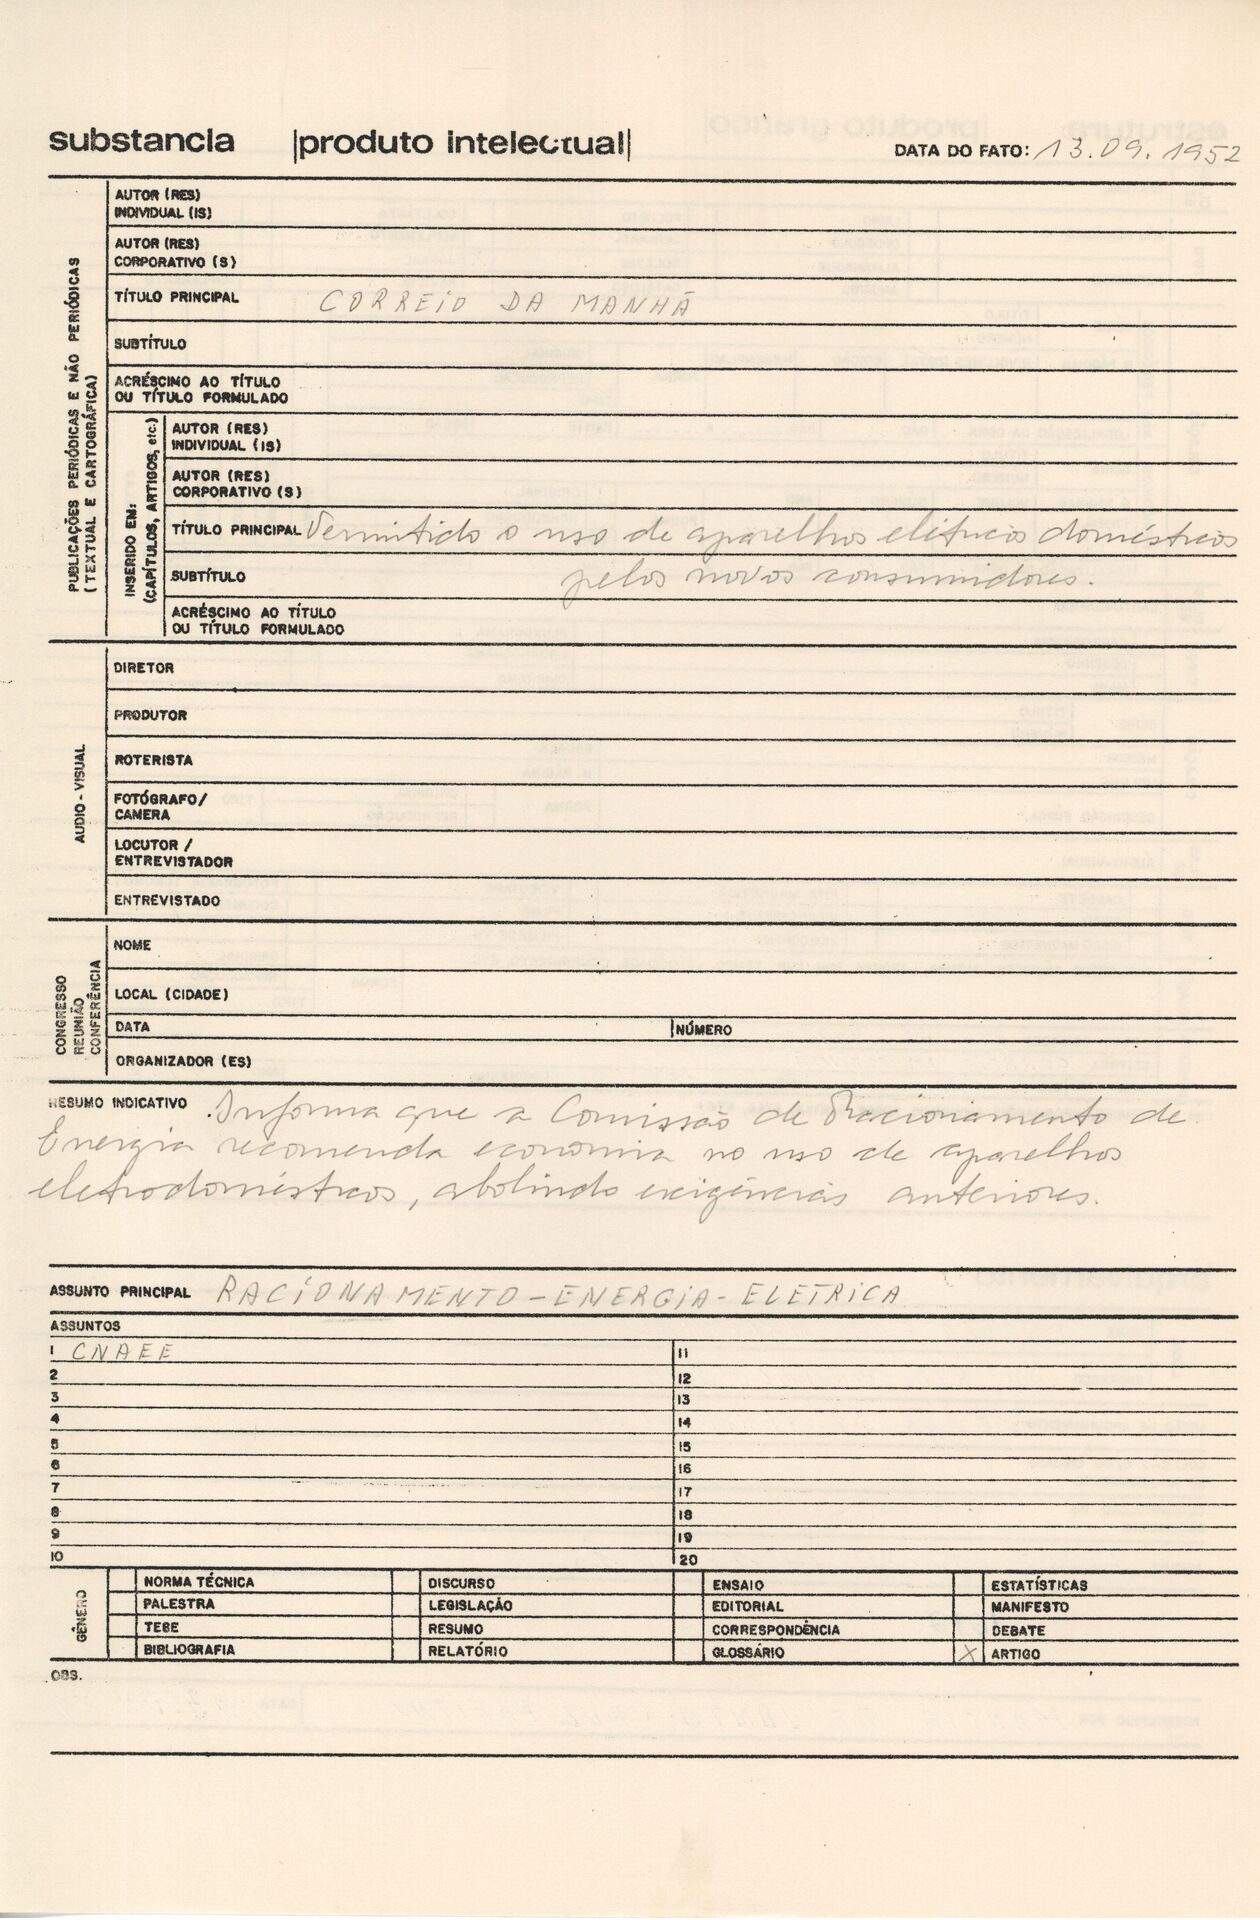 substancia |produto intelectual|
DATA DO FATO: 13.09.1952
PUBLICAÇÕES PERIÓDICAS E NÃO PERIÓDICAS
(TEXTUAL E CARTOGRÁFICA)
AUTOR (RES)
INDIVIDUAL (IS)
AUTOR (RES)
CORPORATIVO (S)
TÍTULO PRINCIPAL CORREIO DA MANHÃ
SUBTÍTULO
ACRÉSCIMO AO TÍTULO
OU TÍTULO FORMULADO
INSERIDO EM:
(CAPÍTULOS, ARTIGOS, etc.)
AUTOR (RES)
INDIVIDUAL (IS)
AUTOR (RES)
CORPORATIVO (S)
TÍTULO PRINCIPAL Permitido o uso de aparelhos elétricos domésticos
SUBTÍTULO pelos novos consumidores.
ACRÉSCIMO AO TÍTULO
OU TÍTULO FORMULADO
AUDIO-VISUAL
DIRETOR
PRODUTOR
ROTERISTA
FOTÓGRAFO/
CAMERA
LOCUTOR /
ENTREVISTADOR
ENTREVISTADO
CONGRESSO
REUNIÃO
CONFERÊNCIA
NOME
LOCAL (CIDADE)
DATA NÚMERO
ORGANIZADOR (ES)
RESUMO INDICATIVO Informa que a Comissão de Racionamento de
Energia recomenda economia no uso de aparelhos
eletrodomésticos, abolindo exigências anteriores.
ASSUNTO PRINCIPAL RACIONAMENTO-ENERGIA-ELETRICA
ASSUNTOS
1 CNAEE 11
2 12
3 13
4 14
5 15
6 16
7 17
8 18
9 19
10 20
GÊNERO
NORMA TÉCNICA DISCURSO ENSAIO ESTATÍSTICAS
PALESTRA LEGISLAÇÃO EDITORIAL MANIFESTO
TESE RESUMO CORRESPONDÊNCIA DEBATE
BIBLIOGRAFIA RELATÓRIO GLOSSÁRIO X ARTIGO
OBS.